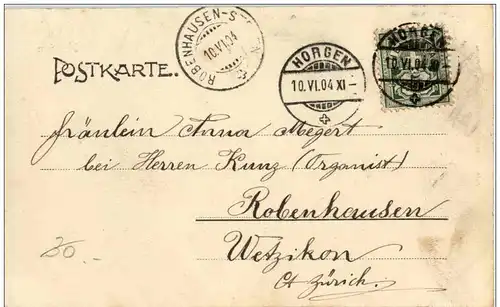 ROBENHAUSEN-S
10.VI.04
HORGEN
10.VI.04 XI
HORGEN
10.VI.04 XI
POSTKARTE.
Fräulein Anna Megert
bei Herren Kunz (Organist)
Robenhausen
Wetzikon
Ct Zürich.